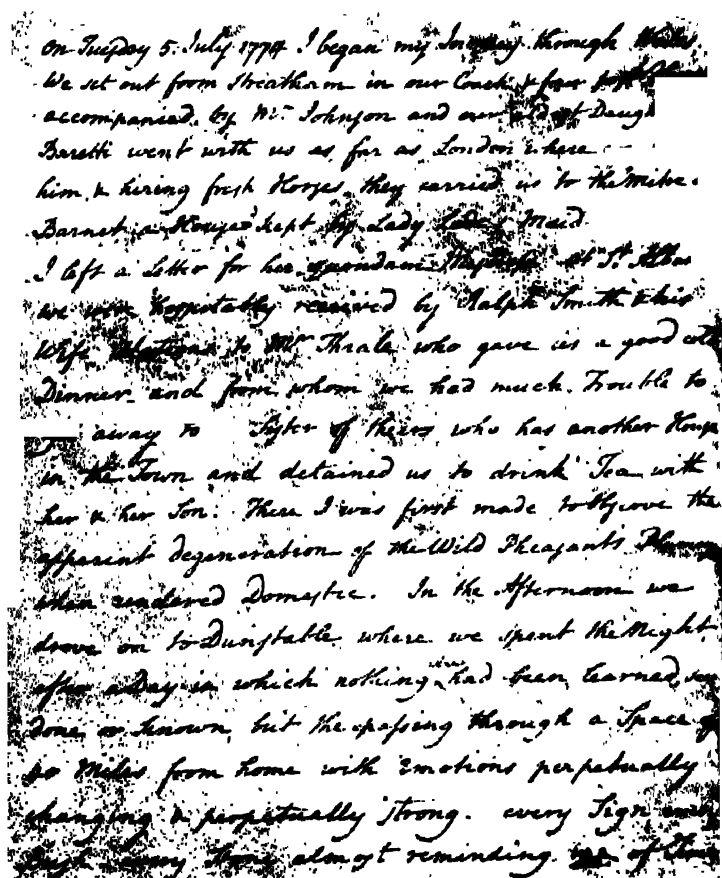 On Tuesday 5. July 1774 I began my Journey through Wales
We set out from Streatham in our Coach & four post
accompanied by Mr. Johnson and our eldest Daugh
Baretti went with us as far as London where
him & hiring fresh Horses they carried us to the Mitre
Barnet a House kept by Lady Maid
I left a Letter for her at St. Albans
we were hospitably received by Ralph Smith & his
Wife Relations to Mr Thrale who gave us a good cold
Dinner and from whom we had much Trouble to
away to Sister of theirs who has another House
in the Town and detained us to drink Tea with
her & her Son: There I was first made to observe the
apparent degeneration of the Wild Pheasants Plumage
when rendered Domestic. In the Afternoon we
drove on to Dunstable where we spent the Night
after a Day in which nothing had been learned, seen
done or known, but the passing through a Space of
40 Miles from home with Emotions perpetually
changing & perpetually strong. every Sign every
Bush every Stone almost reminding me of